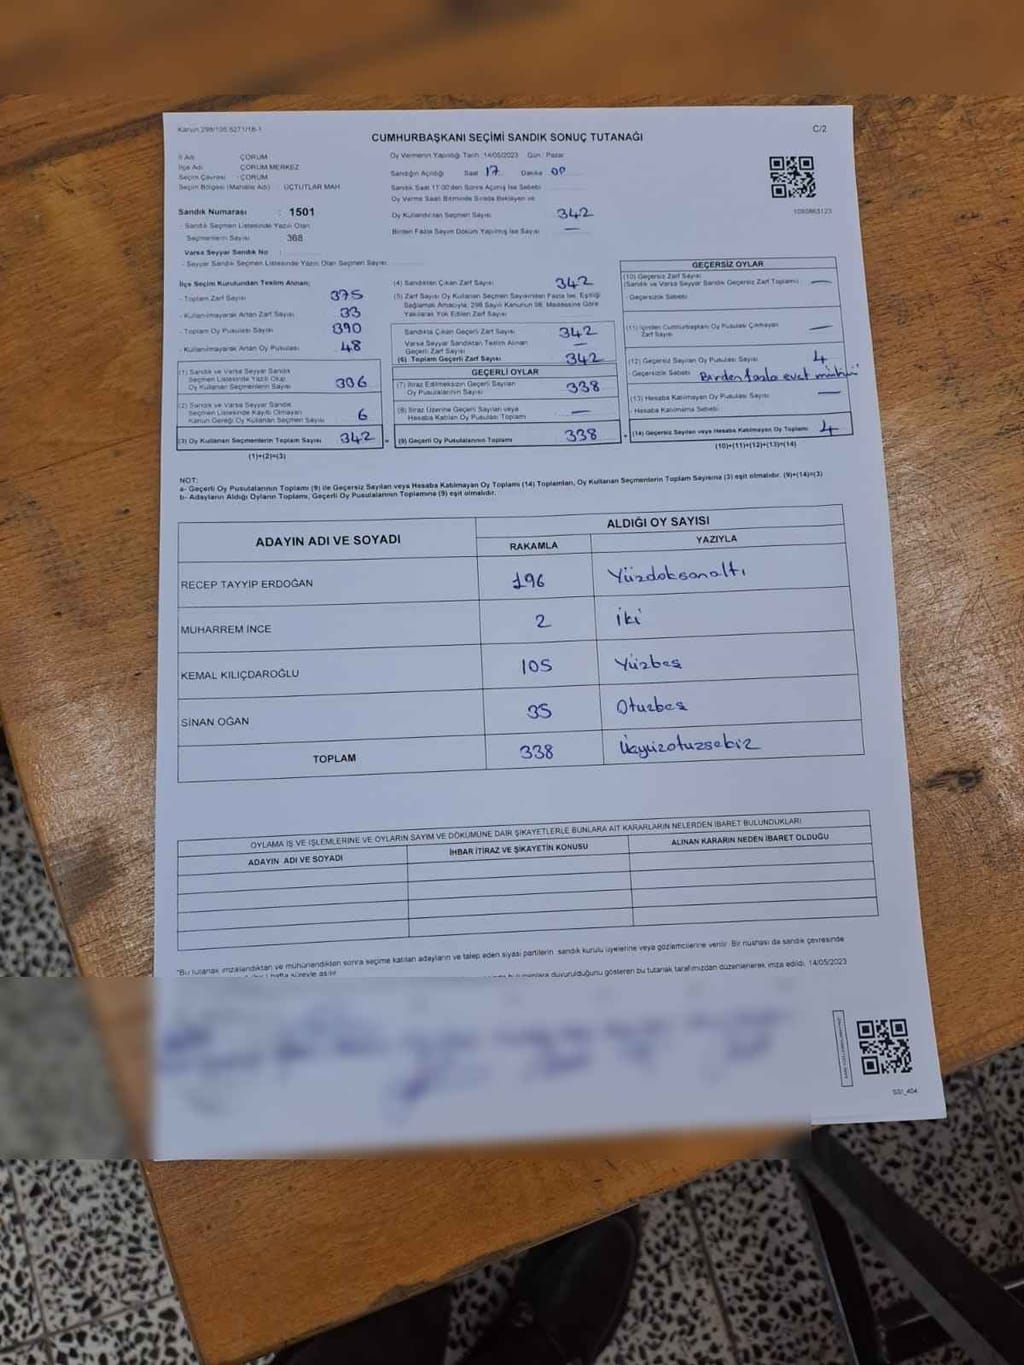 Kanun 298/105 6271/16-1
C/2
CUMHURBAŞKANI SEÇİMİ SANDIK SONUÇ TUTANAĞI
İl Adı : ÇORUM
İlçe Adı : ÇORUM MERKEZ
Seçim Çevresi : ÇORUM
Seçim Bölgesi (Mahalle Adı) : ÜÇTUTLAR MAH.
Sandık Numarası : 1501
- Sandık Seçmen Listesinde Yazılı Olan
Seçmenlerin Sayısı 368
Varsa Seyyar Sandık No :
- Seyyar Sandık Seçmen Listesinde Yazılı Olan Seçmen Sayısı
Oy Vermenin Yapıldığı Tarih :14/05/2023 Gün : Pazar
Sandığın Açıldığı Saat 17 Dakika 00
Sandık Saat 17:00'den Sonra Açılmış İse Sebebi
Oy Verme Saati Bitiminde Sırada Bekleyen ve
Oy Kullandırılan Seçmen Sayısı 342
Birden Fazla Sayım Döküm Yapılmış İse Sayısı —
İlçe Seçim Kurulundan Teslim Alınan;
- Toplam Zarf Sayısı 375
- Kullanılmayarak Artan Zarf Sayısı 33
- Toplam Oy Pusulası Sayısı 390
- Kullanılmayarak Artan Oy Pusulası 48
(1) Sandık ve Varsa Seyyar Sandık
Seçmen Listesinde Yazılı Olup
Oy Kullanan Seçmenlerin Sayısı 336
(2) Sandık ve Varsa Seyyar Sandık
Seçmen Listesinde Kayıtlı Olmayan
Kanun Gereği Oy Kullanan Seçmen Sayısı 6
(3) Oy Kullanan Seçmenlerin Toplam Sayısı 342
(1)+(2)=(3)
(4) Sandıktan Çıkan Zarf Sayısı 342
(5) Zarf Sayısı Oy Kullanan Seçmen Sayısından Fazla İse, Eşitliği
Sağlamak Amacıyla, 298 Sayılı Kanunun 98. Maddesine Göre
Yakılarak Yok Edilen Zarf Sayısı
Sandıkta Çıkan Geçerli Zarf Sayısı 342
Varsa Seyyar Sandıktan Teslim Alınan
Geçerli Zarf Sayısı —
(6) Toplam Geçerli Zarf Sayısı 342
GEÇERLİ OYLAR
(7) İtiraz Edilmeksizin Geçerli Sayılan
Oy Pusulalarının Sayısı 338
(8) İtiraz Üzerine Geçerli Sayılan veya
Hesaba Katılan Oy Pusulası Toplamı —
(9) Geçerli Oy Pusulalarının Toplamı 338
GEÇERSİZ OYLAR
(10) Geçersiz Zarf Sayısı
(Sandık ve Varsa Seyyar Sandık Geçersiz Zarf Toplamı) —
- Geçersizlik Sebebi
(11) İçinden Cumhurbaşkanı Oy Pusulası Çıkmayan
Zarf Sayısı —
(12) Geçersiz Sayılan Oy Pusulası Sayısı 4
- Geçersizlik Sebebi Birden fazla evet mührü
(13) Hesaba Katılmayan Oy Pusulası Sayısı —
- Hesaba Katılmama Sebebi
(14) Geçersiz Sayılan veya Hesaba Katılmayan Oy Toplamı 4
(10)+(11)+(12)+(13)=(14)
NOT:
a- Geçerli Oy Pusulalarının Toplamı (9) ile Geçersiz Sayılan veya Hesaba Katılmayan Oy Toplamı (14) Toplamları, Oy Kullanan Seçmenlerin Toplam Sayısına (3) eşit olmalıdır. (9)+(14)=(3)
b- Adayların Aldığı Oyların Toplamı, Geçerli Oy Pusulalarının Toplamına (9) eşit olmalıdır.
ADAYIN ADI VE SOYADI ALDIĞI OY SAYISI
RAKAMLA YAZIYLA
RECEP TAYYİP ERDOĞAN 196 Yüzdoksanaltı
MUHARREM İNCE 2 İki
KEMAL KILIÇDAROĞLU 105 Yüzbeş
SİNAN OĞAN 35 Otuzbeş
TOPLAM 338 Üçyüzotuzsekiz
OYLAMA İŞ VE İŞLEMLERİNE VE OYLARIN SAYIM VE DÖKÜMÜNE DAİR ŞİKAYETLERLE BUNLARA AİT KARARLARIN NELERDEN İBARET BULUNDUKLARI
ADAYIN ADI VE SOYADI İHBAR İTİRAZ VE ŞİKAYETİN KONUSU ALINAN KARARIN NEDEN İBARET OLDUĞU
"Bu tutanak imzalandıktan ve mühürlendikten sonra seçime katılan adayların ve talep eden siyasi partilerin sandık kurulu üyelerine veya gözlemcilerine verilir. Bir nüshası da sandık çevresinde
hafta süreyle asılır. duyurulduğunu gösteren bu tutanak tarafımızdan düzenlenerek imza edildi. 14/05/2023